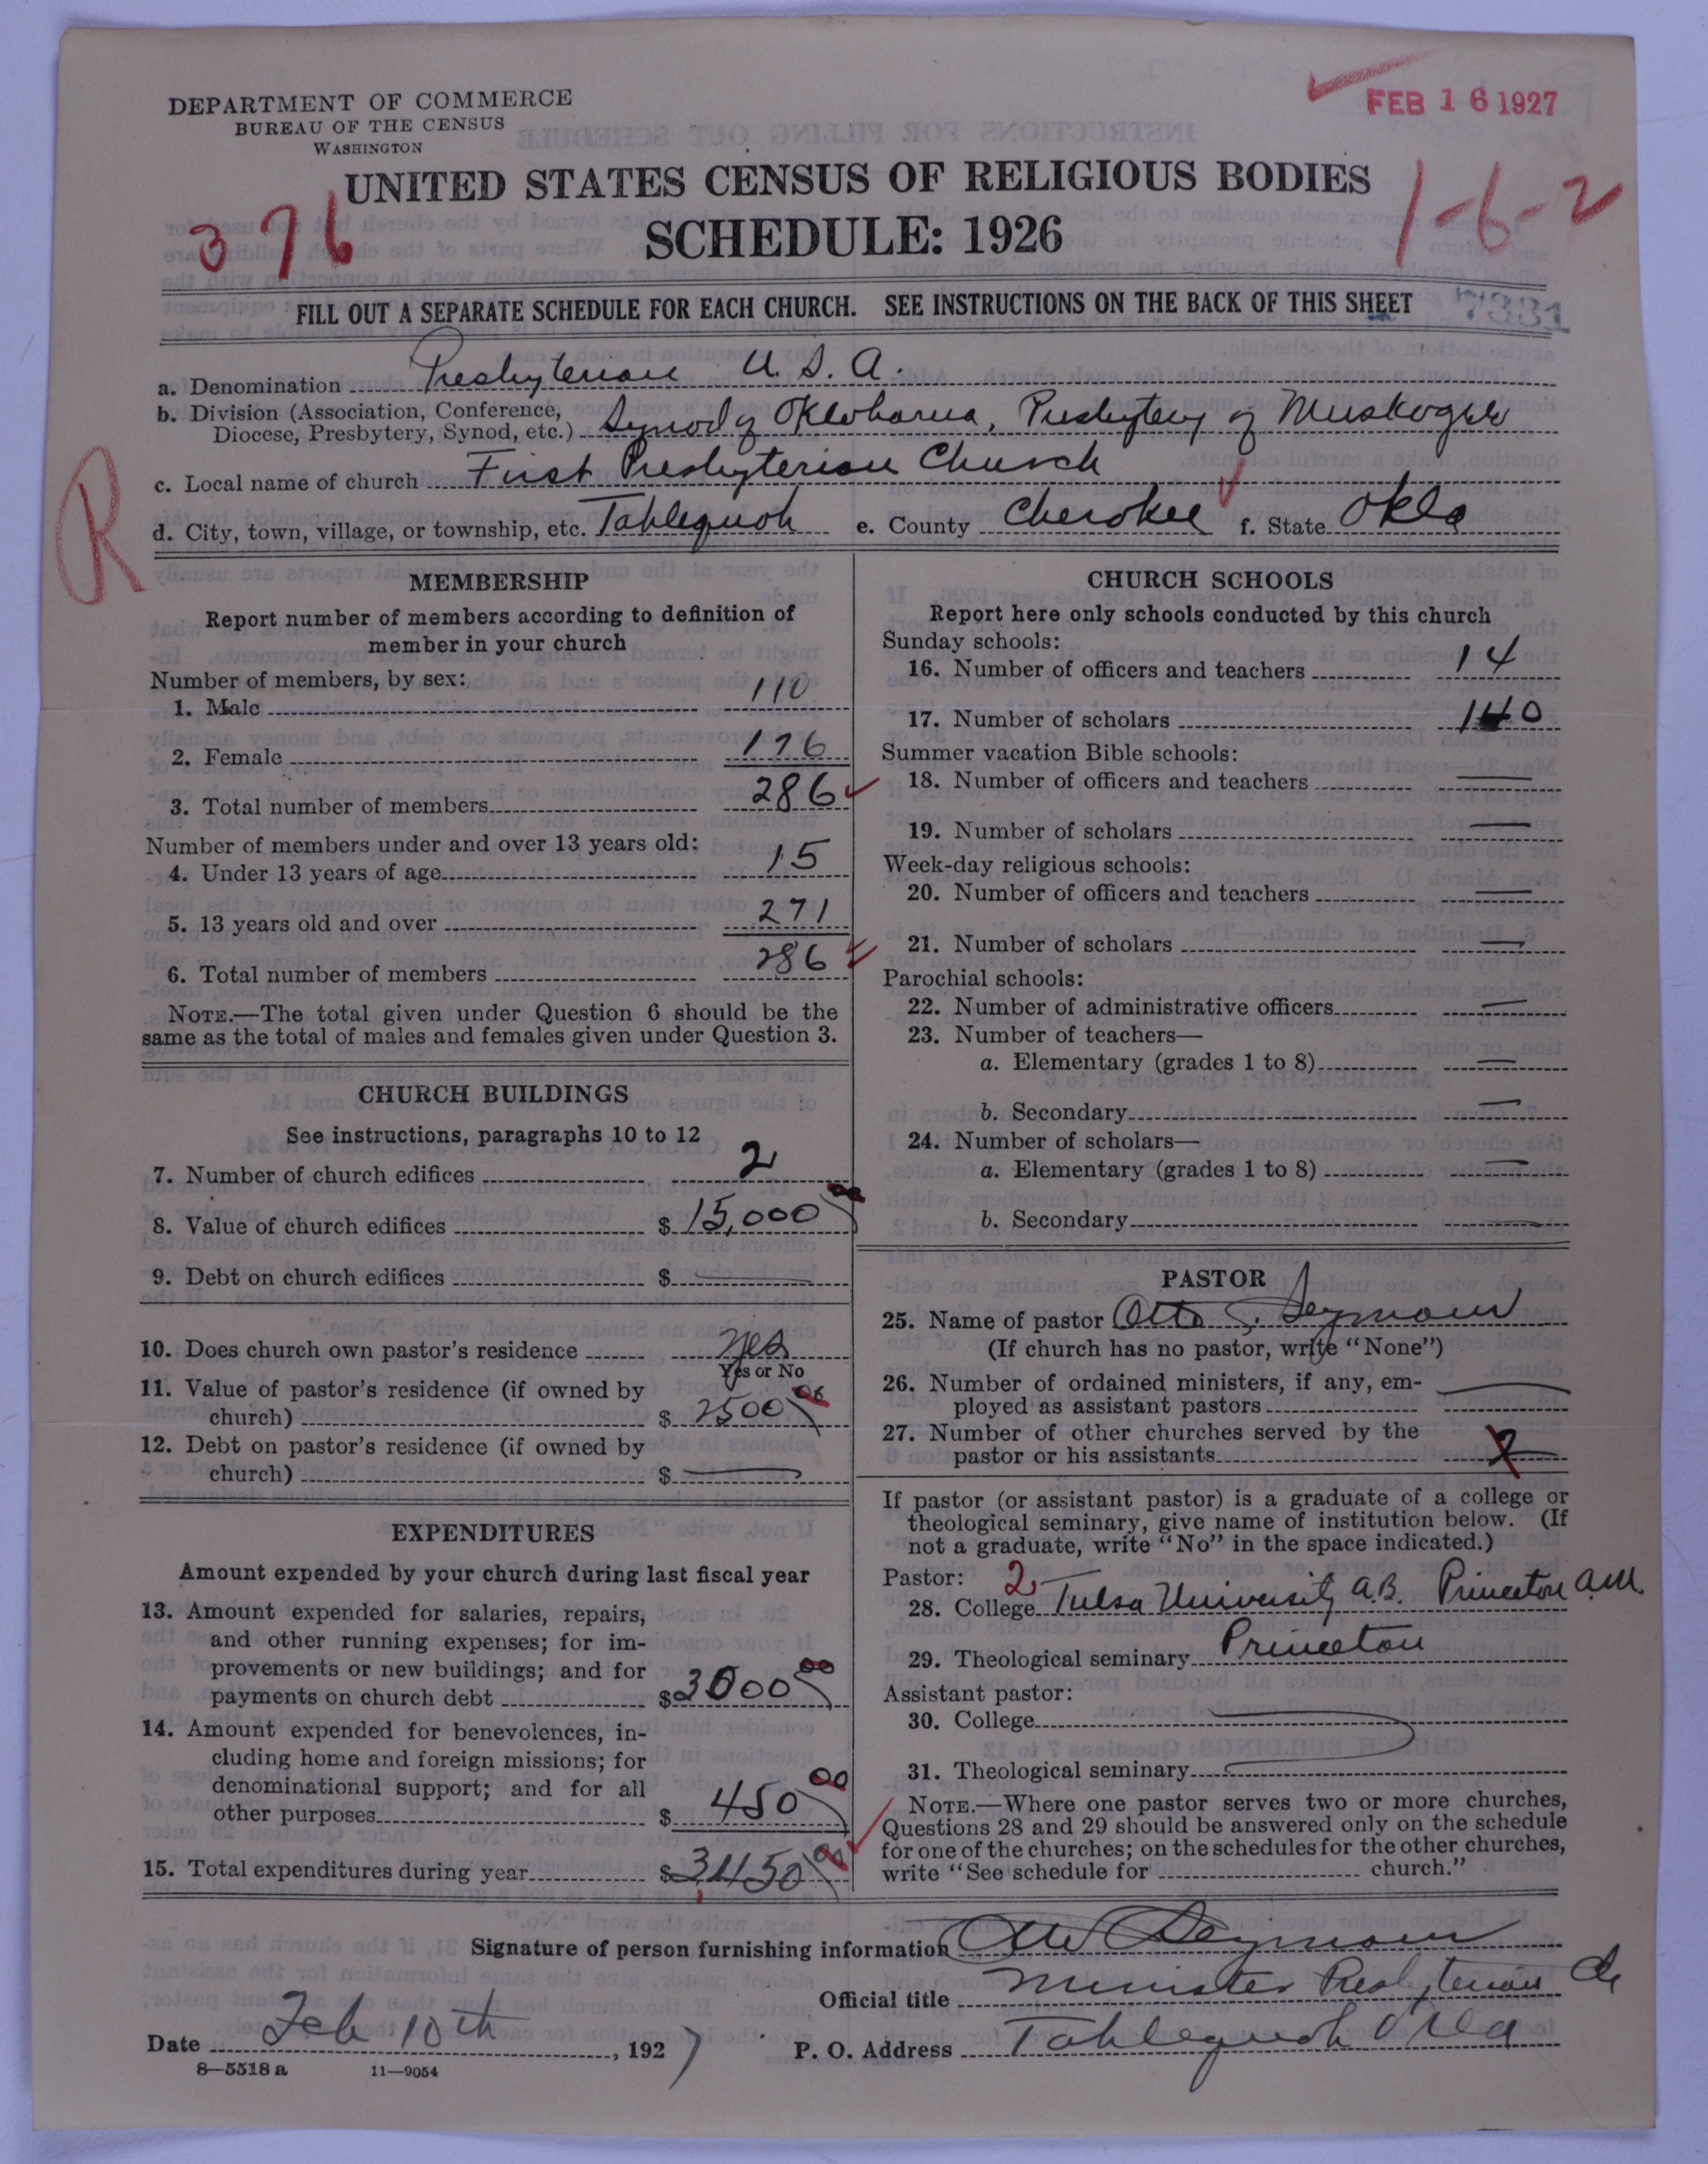 DEPARTMENT OF COMMERCE
BUREAU OF THE CENSUS
WASHINGTON
FEB 16 1927
UNITED STATES CENSUS OF RELIGIOUS BODIES
SCHEDULE: 1926
376
1-6-2
FILL OUT A SEPARATE SCHEDULE FOR EACH CHURCH. SEE INSTRUCTIONS ON THE BACK OF THIS SHEET
a. Denomination Presbyterian U. S. A.
b. Division (Association, Conference,
Diocese, Presbytery, Synod, etc.) Synod of Oklahoma, Presbytery of Muskogee
c. Local name of church First Presbyterian Church
d. City, town, village, or township, etc. Tahlequah e. County Cherokee f. State Okla
R
MEMBERSHIP
Report number of members according to definition of
member in your church
Number of members, by sex:
1. Male 110
2. Female 176
3. Total number of members 286
Number of members under and over 13 years old:
4. Under 13 years of age 15
5. 13 years old and over 271
6. Total number of members 286
NOTE.—The total given under Question 6 should be the
same as the total of males and females given under Question 3.
CHURCH BUILDINGS
See instructions, paragraphs 10 to 12
7. Number of church edifices 2
8. Value of church edifices $ 15,000 00
9. Debt on church edifices $ —
10. Does church own pastor's residence yes
Yes or No
11. Value of pastor's residence (if owned by
church) $ 2500 00
12. Debt on pastor's residence (if owned by
church) $ —
EXPENDITURES
Amount expended by your church during last fiscal year
13. Amount expended for salaries, repairs,
and other running expenses; for im-
provements or new buildings; and for
payments on church debt $ 3000 00
14. Amount expended for benevolences, in-
cluding home and foreign missions; for
denominational support; and for all
other purposes $ 450 00
15. Total expenditures during year $ 3,450 00
CHURCH SCHOOLS
Report here only schools conducted by this church
Sunday schools:
16. Number of officers and teachers 14
17. Number of scholars 140
Summer vacation Bible schools:
18. Number of officers and teachers —
19. Number of scholars —
Week-day religious schools:
20. Number of officers and teachers —
21. Number of scholars —
Parochial schools:
22. Number of administrative officers —
23. Number of teachers—
a. Elementary (grades 1 to 8) —
b. Secondary —
24. Number of scholars—
a. Elementary (grades 1 to 8) —
b. Secondary —
PASTOR
25. Name of pastor Otto J. Seymour
(If church has no pastor, write "None")
26. Number of ordained ministers, if any, em-
ployed as assistant pastors —
27. Number of other churches served by the
pastor or his assistants
If pastor (or assistant pastor) is a graduate of a college or
theological seminary, give name of institution below. (If
not a graduate, write "No" in the space indicated.)
Pastor: 2
28. College Tulsa University A.B. Princeton A.M.
29. Theological seminary Princeton
Assistant pastor:
30. College
31. Theological seminary
NOTE.—Where one pastor serves two or more churches,
Questions 28 and 29 should be answered only on the schedule
for one of the churches; on the schedules for the other churches,
write "See schedule for church."
Signature of person furnishing information Otto Seymour
Official title Minister Presbyterian Ch
Date Feb 10th, 1927 P. O. Address Tahlequah Okla
8—5518 a 11—9054